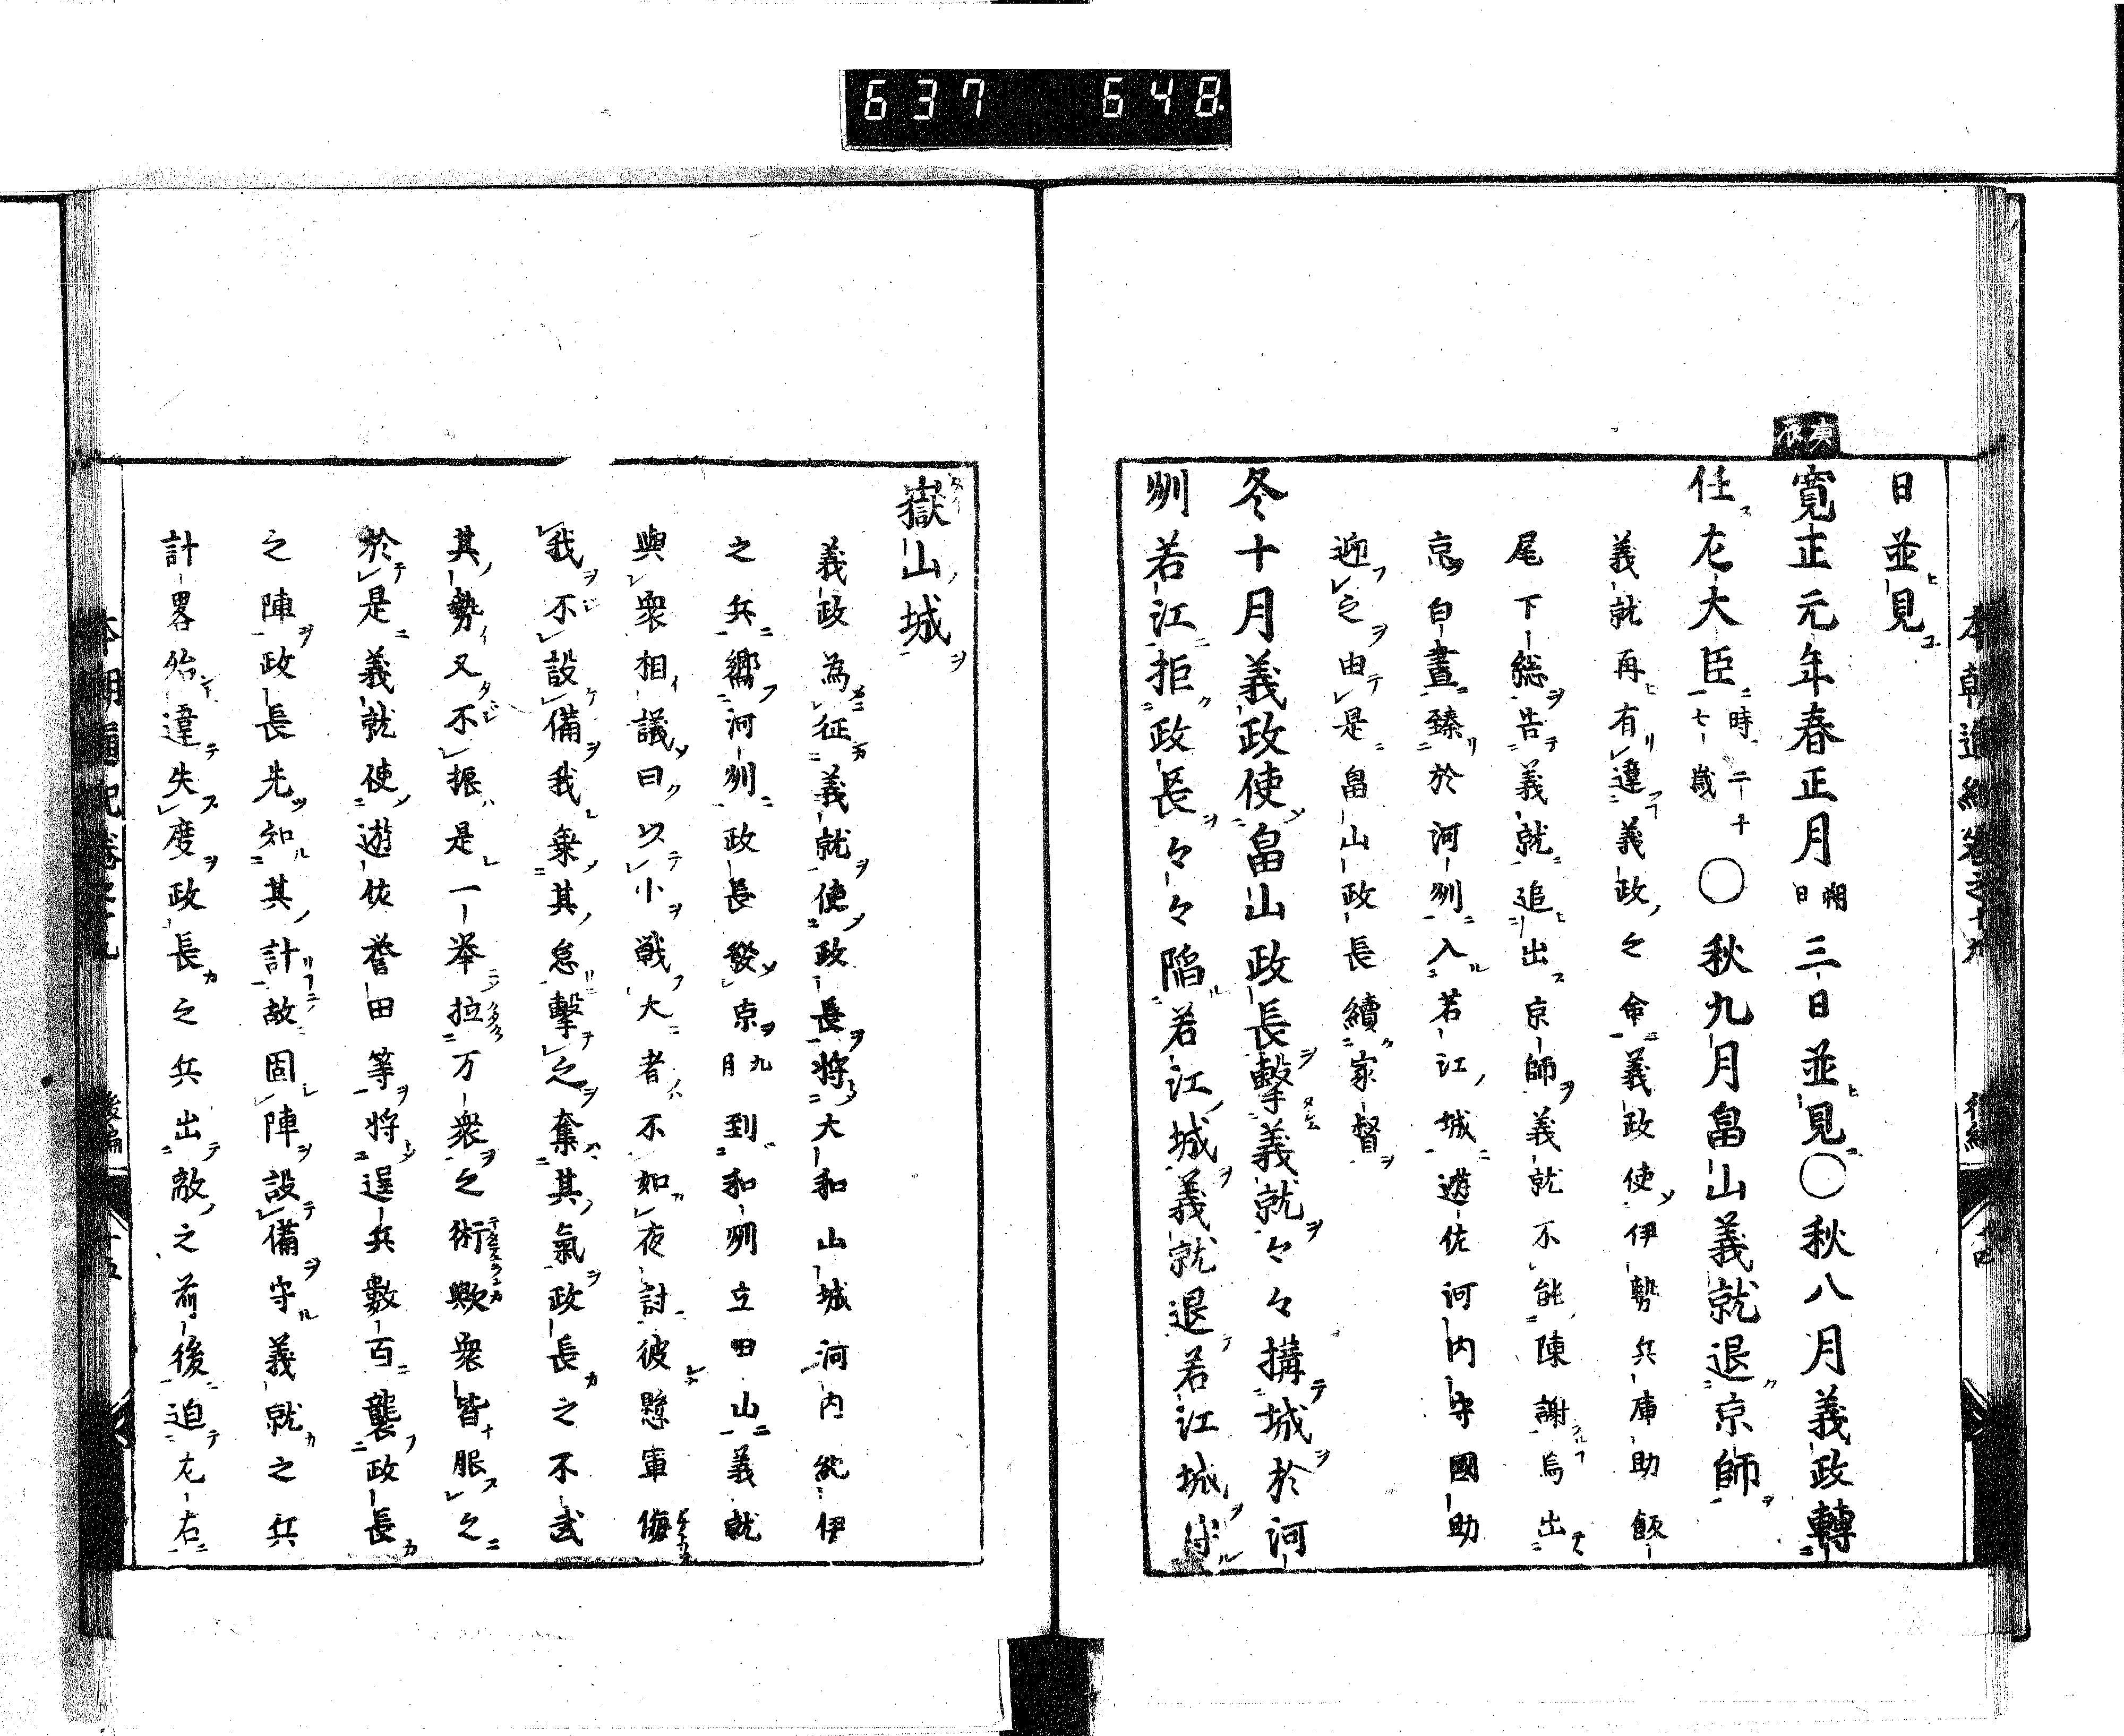 637 648
本朝通紀卷之十九 後編 十四
日並見
庚辰
寛正元年春正月朔日三日並見〇秋八月義政轉
任左大臣時二十七歳〇秋九月畠山義就退京師
義就再有違義政之命義政使伊勢兵庫助飯
尾下総告義就追出京師義就不能陳謝焉出
京白晝臻於河刕入若江城遊佐河内守國助
迎之由是畠山政長續家督
冬十月義政使畠山政長擊義就々々搆城於河
刕若江拒政長々々陷若江城義就退若江城守
嶽山城
義政為征義就使政長將大和山城河内紀伊
之兵嚮河刕政長發京九月到和刕立田山義就
與衆相議曰以小戦大者不如夜討彼懸軍侮
我不設備我乗其怠擊之奪其氣政長之不武
其勢又不振是一挙拉万衆之術歟衆皆服之
於是義就使遊佐誉田等將逞兵數百襲政長
之陣政長先知其計故固陣設備守義就之兵
計畧殆違失度政長之兵出敵之前後迫左右
本朝通紀卷之十九 後編 十五